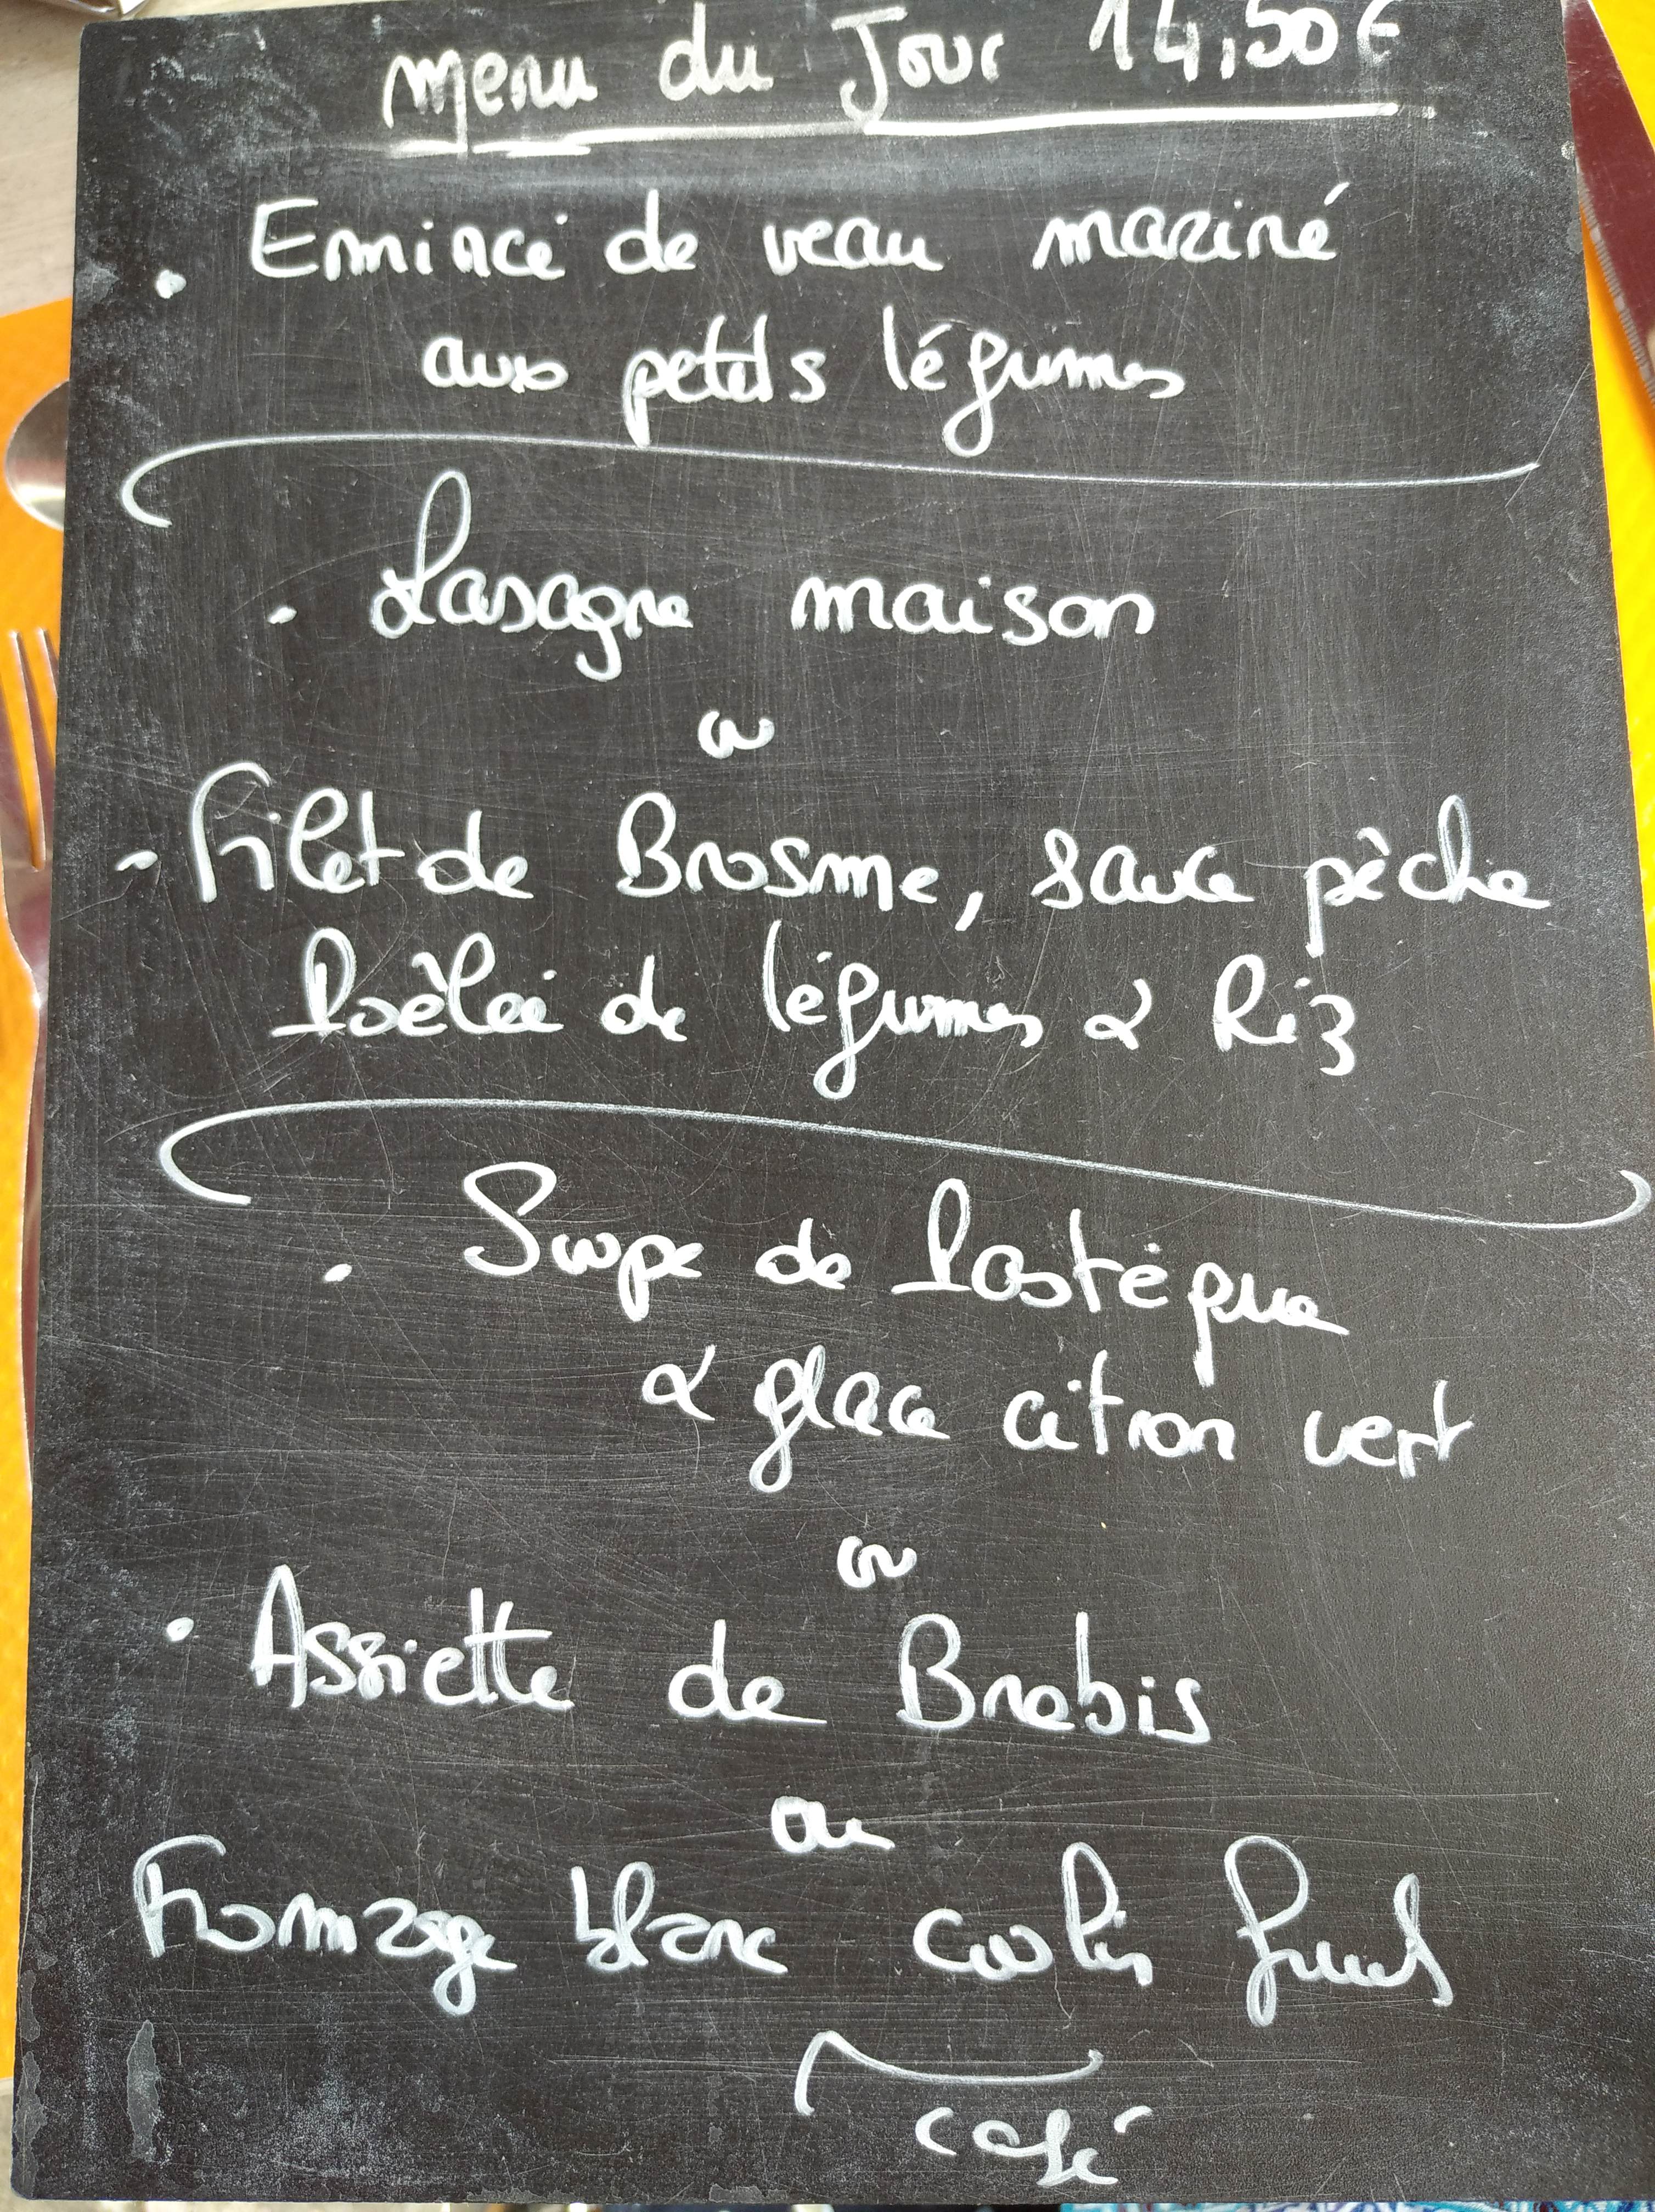 menu du Jour 14,50€
. Emincé de veau mariné
aux petits légumes
. Lasagne maison
ou
- Filet de Brosme, sauce pêche
Poêlée de légumes & Riz
. Soupe de Pastèque
& glace citron vert
ou
. Assiette de Brebis
ou
Fromage blanc coulis fruits
café